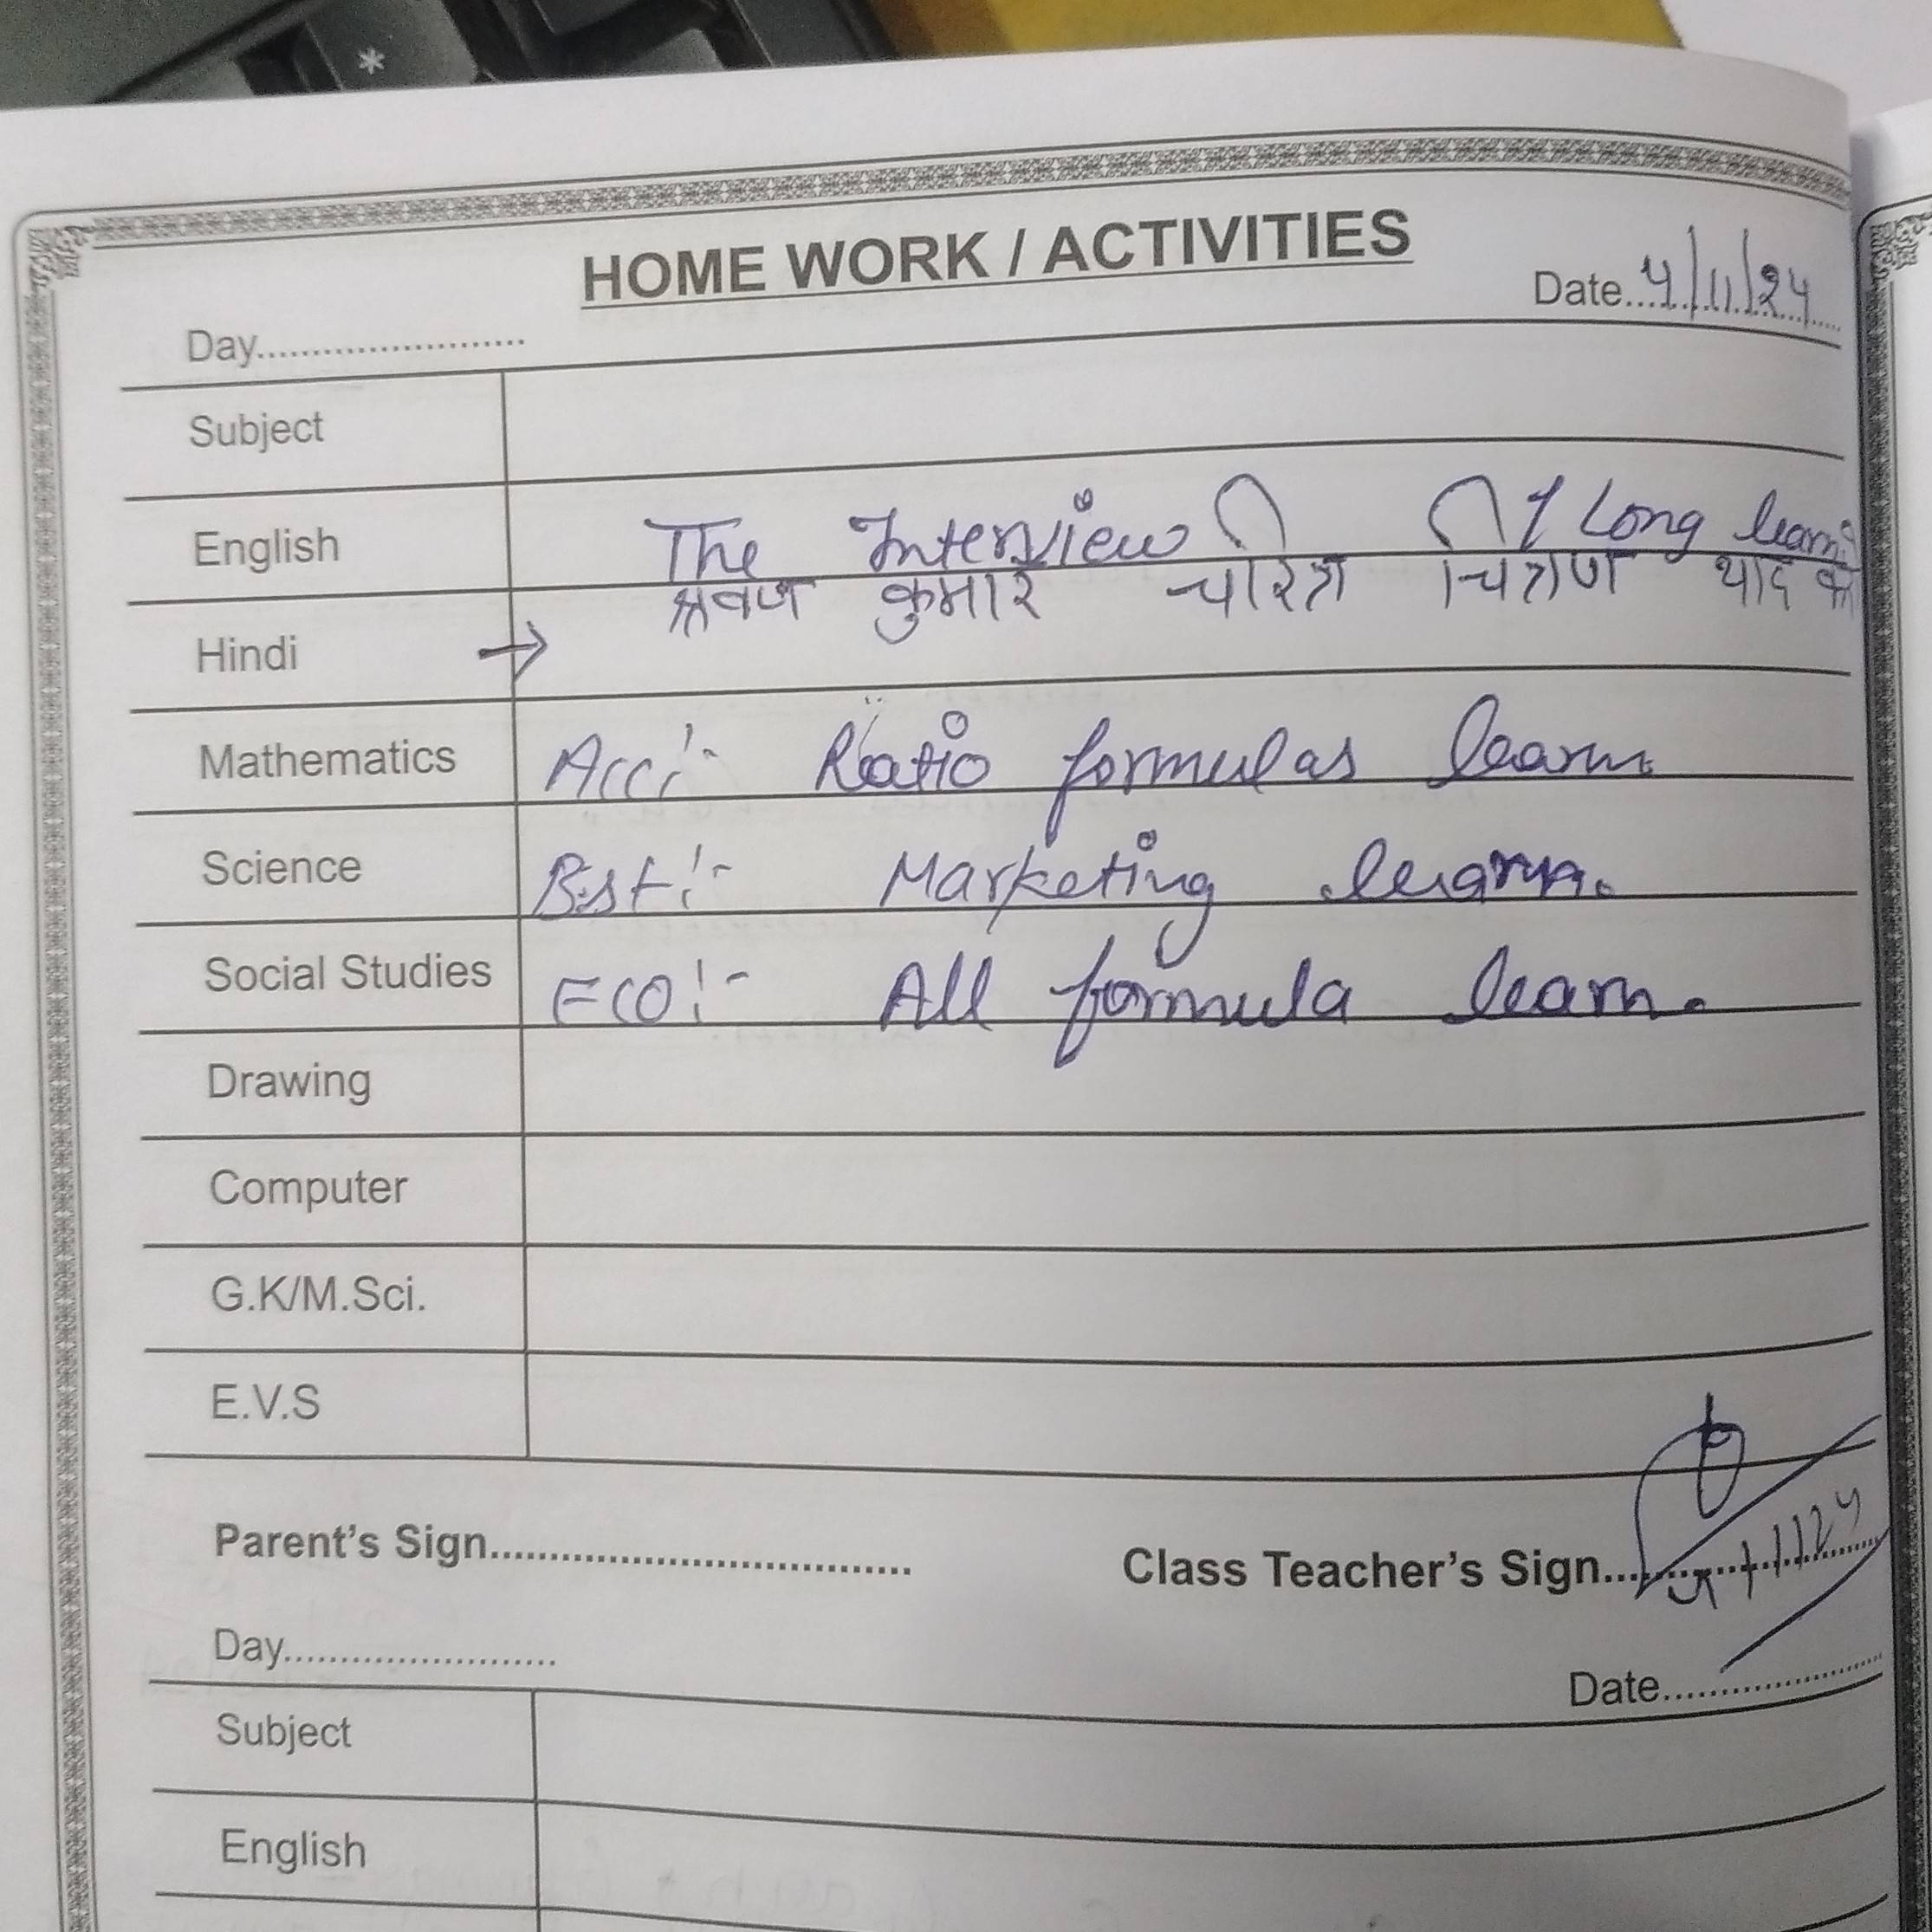 *
HOME WORK / ACTIVITIES
Day........................ Date...4/11/24
Subject
English The Interview 1 Long learn
Hindi → श्रवण कुमार चरित्र चित्रण याद
Mathematics Acc:- Ratio formulas learn.
Science B.st:- Marketing learn.
Social Studies Eco:- All formula learn.
Drawing
Computer
G.K/M.Sci.
E.V.S
Parent's Sign.................................... Class Teacher's Sign........................
Day........................ Date....................
Subject
English